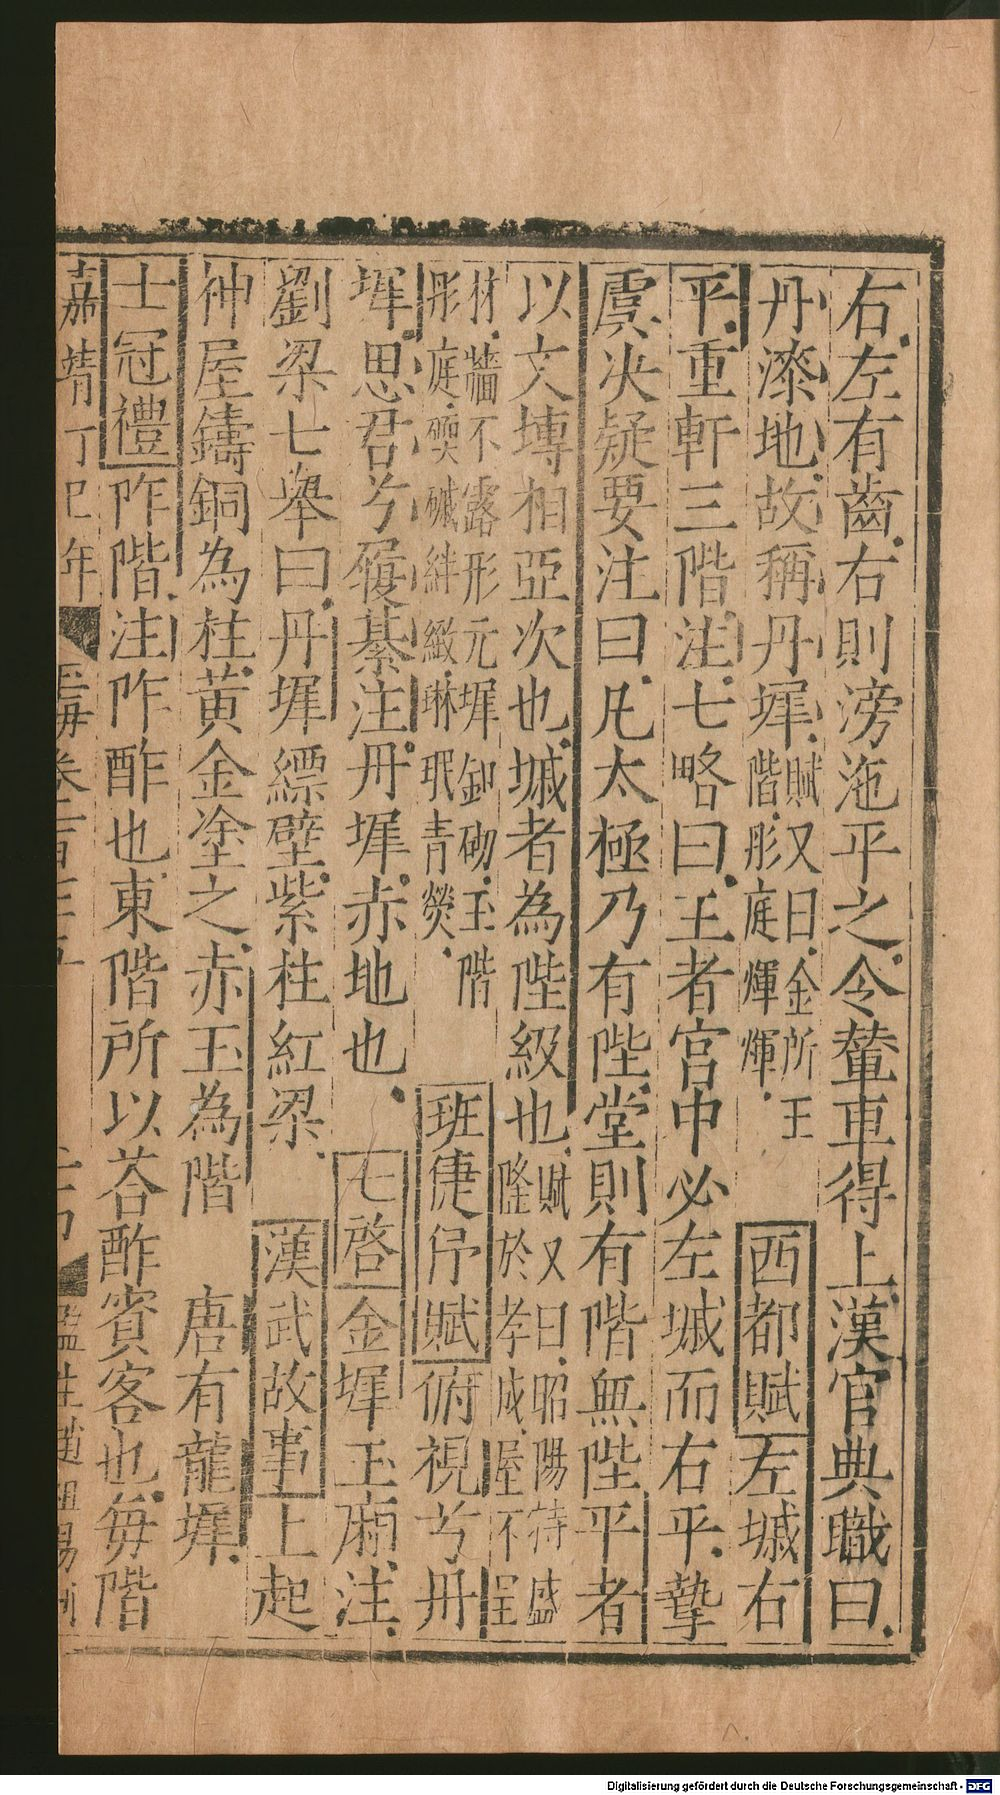 右左有齒右則滂沲平之令輦車得上漢官典職曰
丹漆地故稱丹墀賦又曰金𨥦玉階彤庭煇煇西都賦左墄右
平重軒三階注七略曰王者宫中必左墄而右平摯
虞决疑要注曰凡太極乃有陛堂則有階無陛平者
以文塼相亞次也墄者為陛級也賦又曰昭陽特盛隆於孝成屋不呈
材牆不露形元墀釦砌玉階彤庭碝磩綵緻琳珉青熒班倢伃賦俯視兮丹
墀思君兮履綦注丹墀赤地也七啓金墀玉廂注
劉梁七舉曰丹墀縹壁紫柱紅梁漢武故事上起
神屋鑄銅為柱黄金塗之赤玉為階唐有龍墀
士冠禮阼階注阼酢也東階所以荅酢賓客也毎階
嘉靖丁巳年 玉海卷
Digitalisierung gefördert durch die Deutsche Forschungsgemeinschaft - DFG